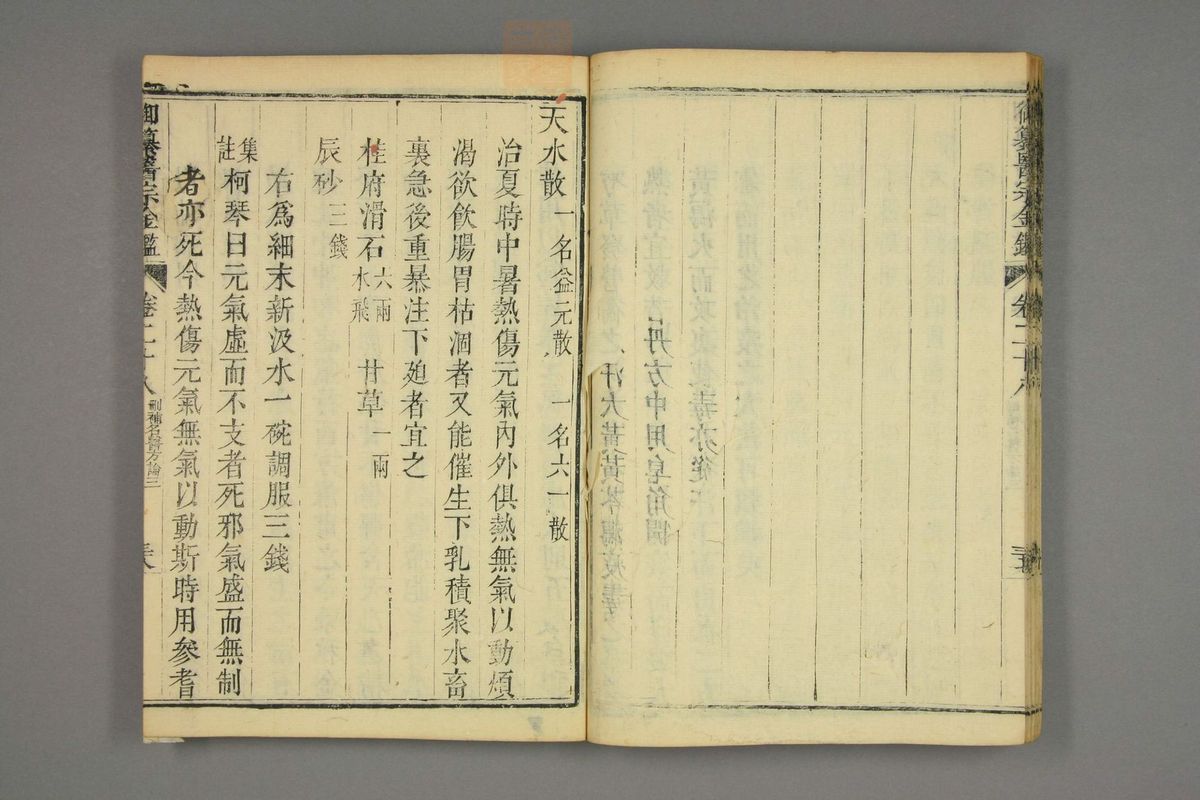 御纂醫宗金鑑 卷二十八
天水散 一名益元散 一名六一散
治夏時中暑熱傷元氣內外俱熱無氣以動煩
渴欲飲腸胃枯涸者又能催生下乳積聚水畜
裏急後重暴注下廹者宜之
桂府滑石 六兩水飛 甘草 一兩
辰砂 三錢
右爲細末新汲水一碗調服三錢
集註 柯琴曰元氣虛而不支者死邪氣盛而無制
者亦死今熱傷元氣無氣以動斯時用參耆
御纂醫宗金鑑 卷二十八 刪補名醫方論三